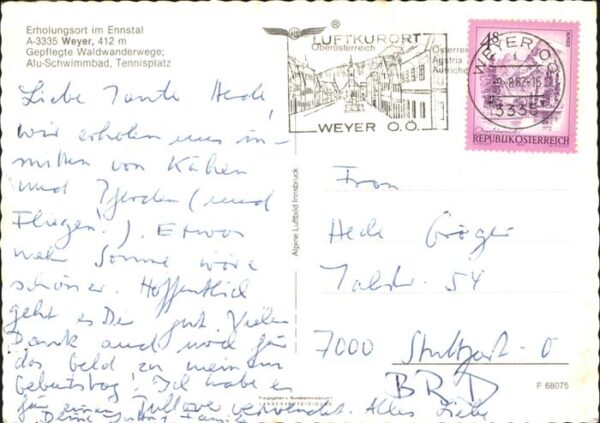 Erholungsort im Ennstal
A-3335 Weyer, 412 m
Gepflegte Waldwanderwege;
Alu-Schwimmbad, Tennisplatz
®
LUFTKURORT
Oberösterreich
WEYER O.Ö.
Österrei
Austria
Autriche
WEYER OÖ
-9.-8.82-15
3335
S 8
REPUBLIK ÖSTERREICH
Liebe Tante Hede,
wir erholen uns in-
mitten von Kühen
und Pferden (und
Fliegen!). Etwas
mehr Sonne wäre
schöner. Hoffentlich
geht es Dir gut. Vielen
Dank auch noch für
das Geld zu meinem
Geburtstag! Ich habe es
für einen Pullover verwendet. Alles Liebe
Deine
Alpine Luftbild Innsbruck
Frau
Hede
Talstr. 54
7000 Stuttgart-O
BRD
Freigegeben v. Bundesministerium f.
LANDESVERTEIDIGUNG
F 68075